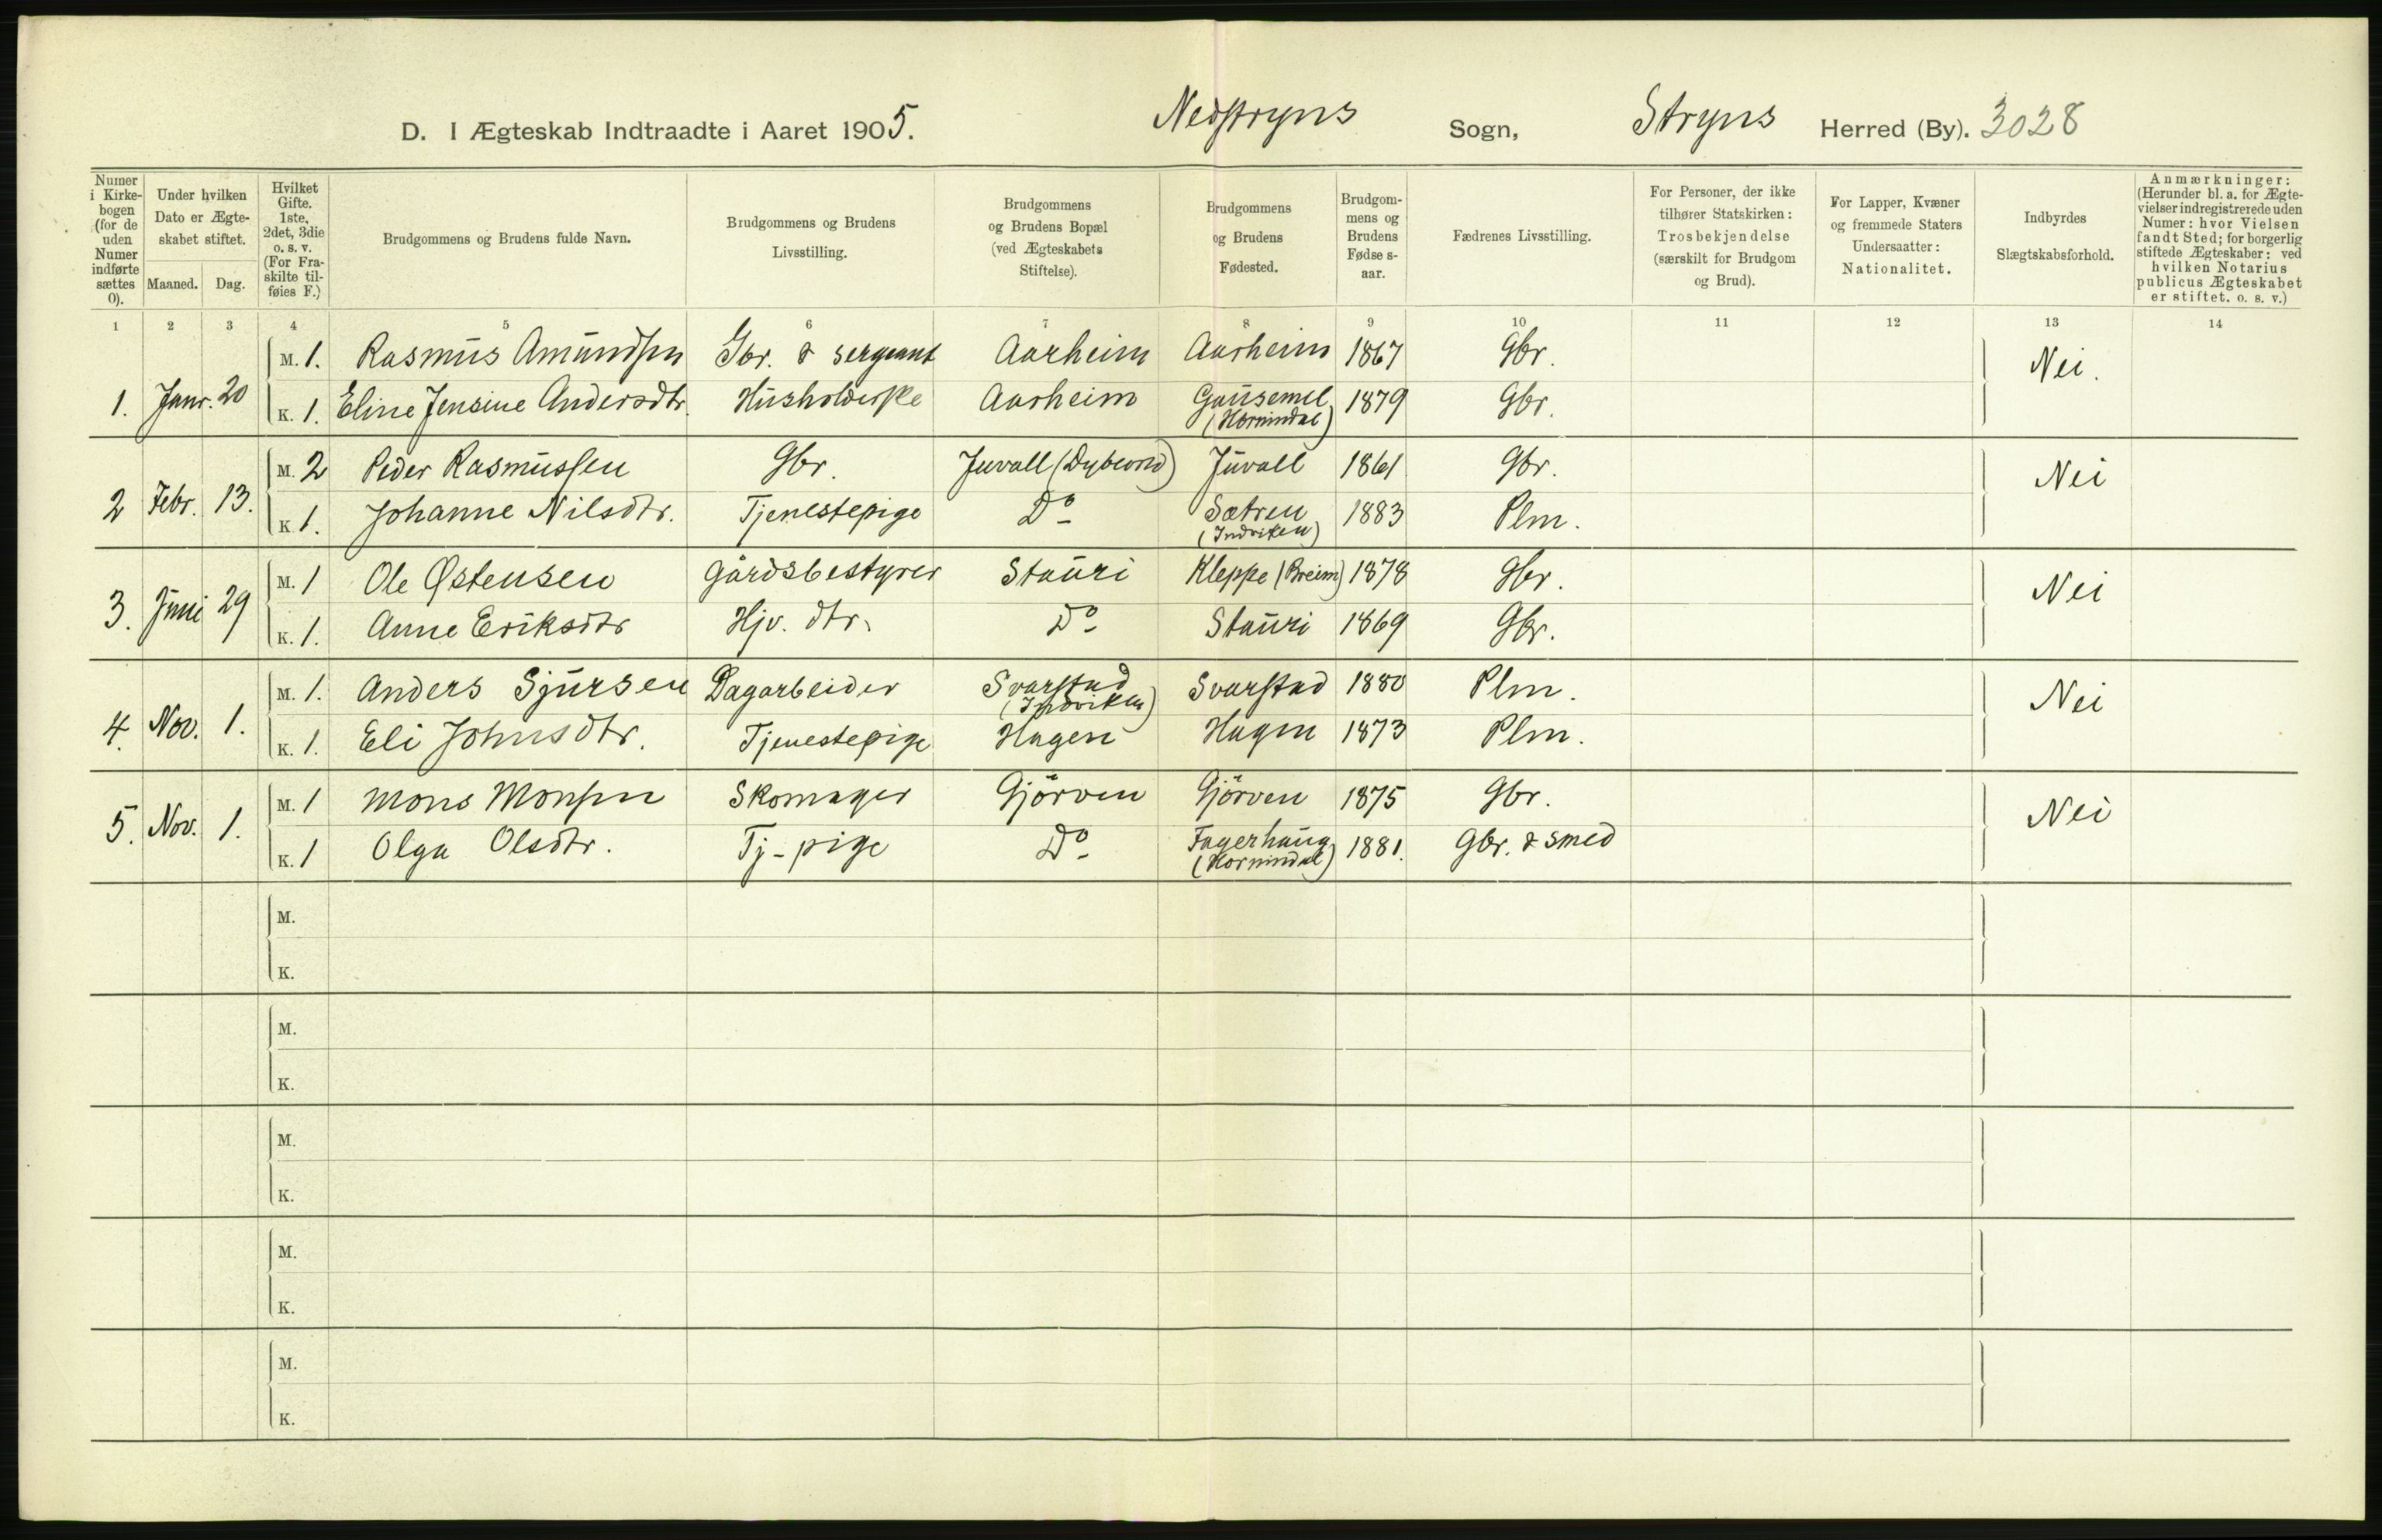 D. I Ægteskab Indtraadte i Aaret 1905. Nedstryns Sogn, Stryns Herred (By). 3028
Numer i Kirkebogen (for de uden Numer indførte sættes 0).
Under hvilken Dato er Ægteskabet stiftet.
Maaned. Dag.
Hvilket Gifte. 1ste, 2det, 3die o. s. v. (For Fraskilte tilføies F.)
Brudgommens og Brudens fulde Navn.
Brudgommens og Brudens Livsstilling.
Brudgommens og Brudens Bopæl (ved Ægteskabets Stiftelse).
Brudgommens og Brudens Fødested.
Brudgommens og Brudens Fødselsaar.
Fædrenes Livsstilling.
For Personer, der ikke tilhører Statskirken: Trosbekjendelse (særskilt for Brudgom og Brud).
For Lapper, Kvæner og fremmede Staters Undersaatter: Nationalitet.
Indbyrdes Slægtskabsforhold.
Anmærkninger: (Herunder bl. a. for Ægtevielser indregistrerede uden Numer: hvor Vielsen fandt Sted; for borgerlig stiftede Ægteskaber: ved hvilken Notarius publicus Ægteskabet er stiftet. o. s. v.)
1 2 3 4 5 6 7 8 9 10 11 12 13 14
M. 1. Rasmus Amundsen Gbr. & sergeant Aarheim Aarheim 1867 Gbr. Nei.
1. Janr. 20 K. 1. Eline Jensine Andersdtr. Husholderske Aarheim Gausemel (Hornindal) 1879 Gbr.
M. 2 Peder Rasmussen Gbr. Juvall (Dybvand) Juvall 1861 Gbr. Nei
2 Febr. 13. K. 1. Johanne Nilsdtr. Tjenestepige Do Sætren (Indviken) 1883 Plm.
M. 1 Ole Østensen gårdsbestyrer Stauri Kleppe (Breim) 1878 Gbr. Nei
3. Juni 29 K. 1. Anne Eriksdtr Hjv. dtr. Do Stauri 1869 Gbr.
M. 1. Anders Sjursen Dagarbeider Svarstad (Indviken) Svarstad 1880 Plm. Nei
4. Nov. 1. K. 1. Eli Johnsdtr. Tjenestepige Hagen Hagen 1873 Plm.
M. 1 Mons Monsen Skomager Gjörven Gjörven 1875 Gbr. Nei
5. Nov. 1. K. 1 Olga Olsdtr. Tj-pige Do Fagerhaug (Hornindal) 1881. Gbr. & smed
M.
K.
M.
K.
M.
K.
M.
K.
M.
K.